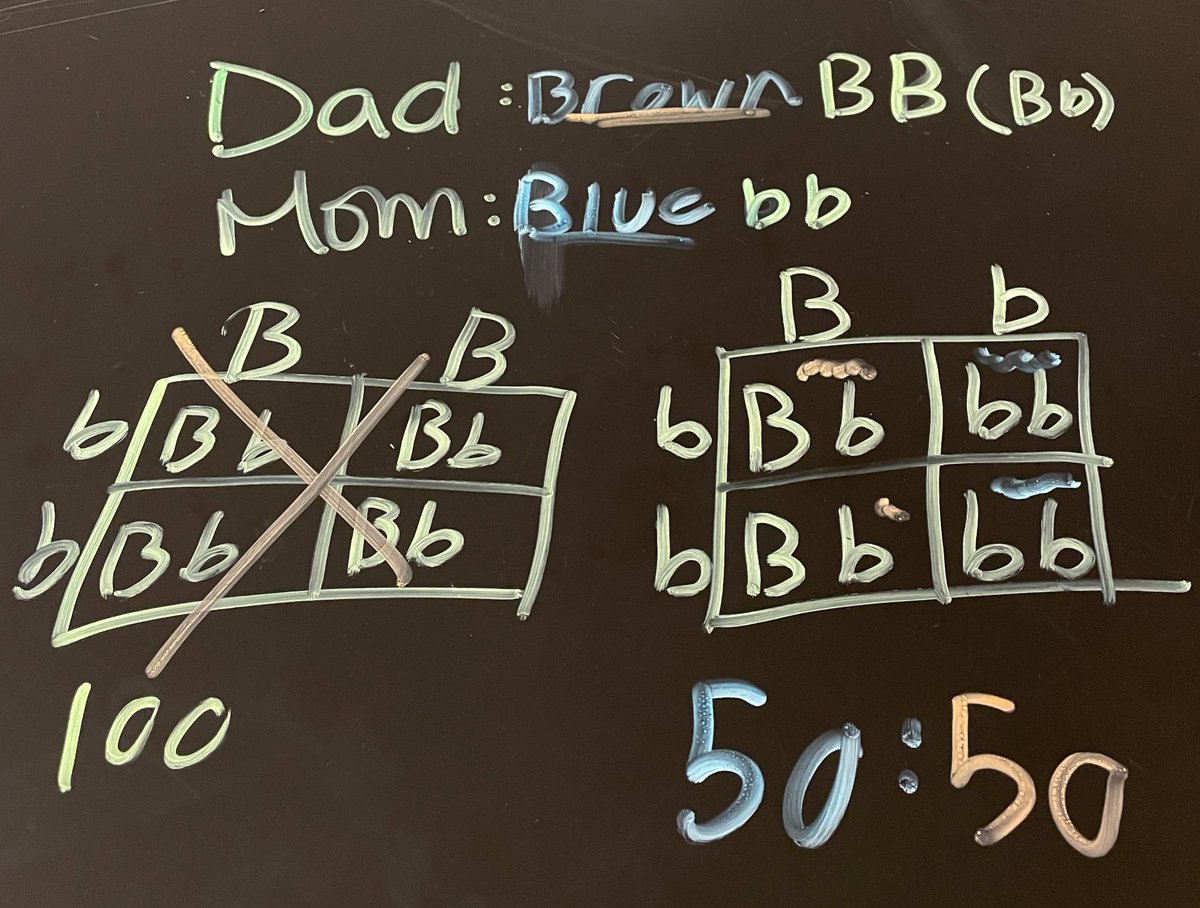 Dad : Brown BB (Bb)
Mom : Blue bb
B B
b Bb Bb
b Bb Bb
100
B b
b Bb bb
b Bb bb
50:50